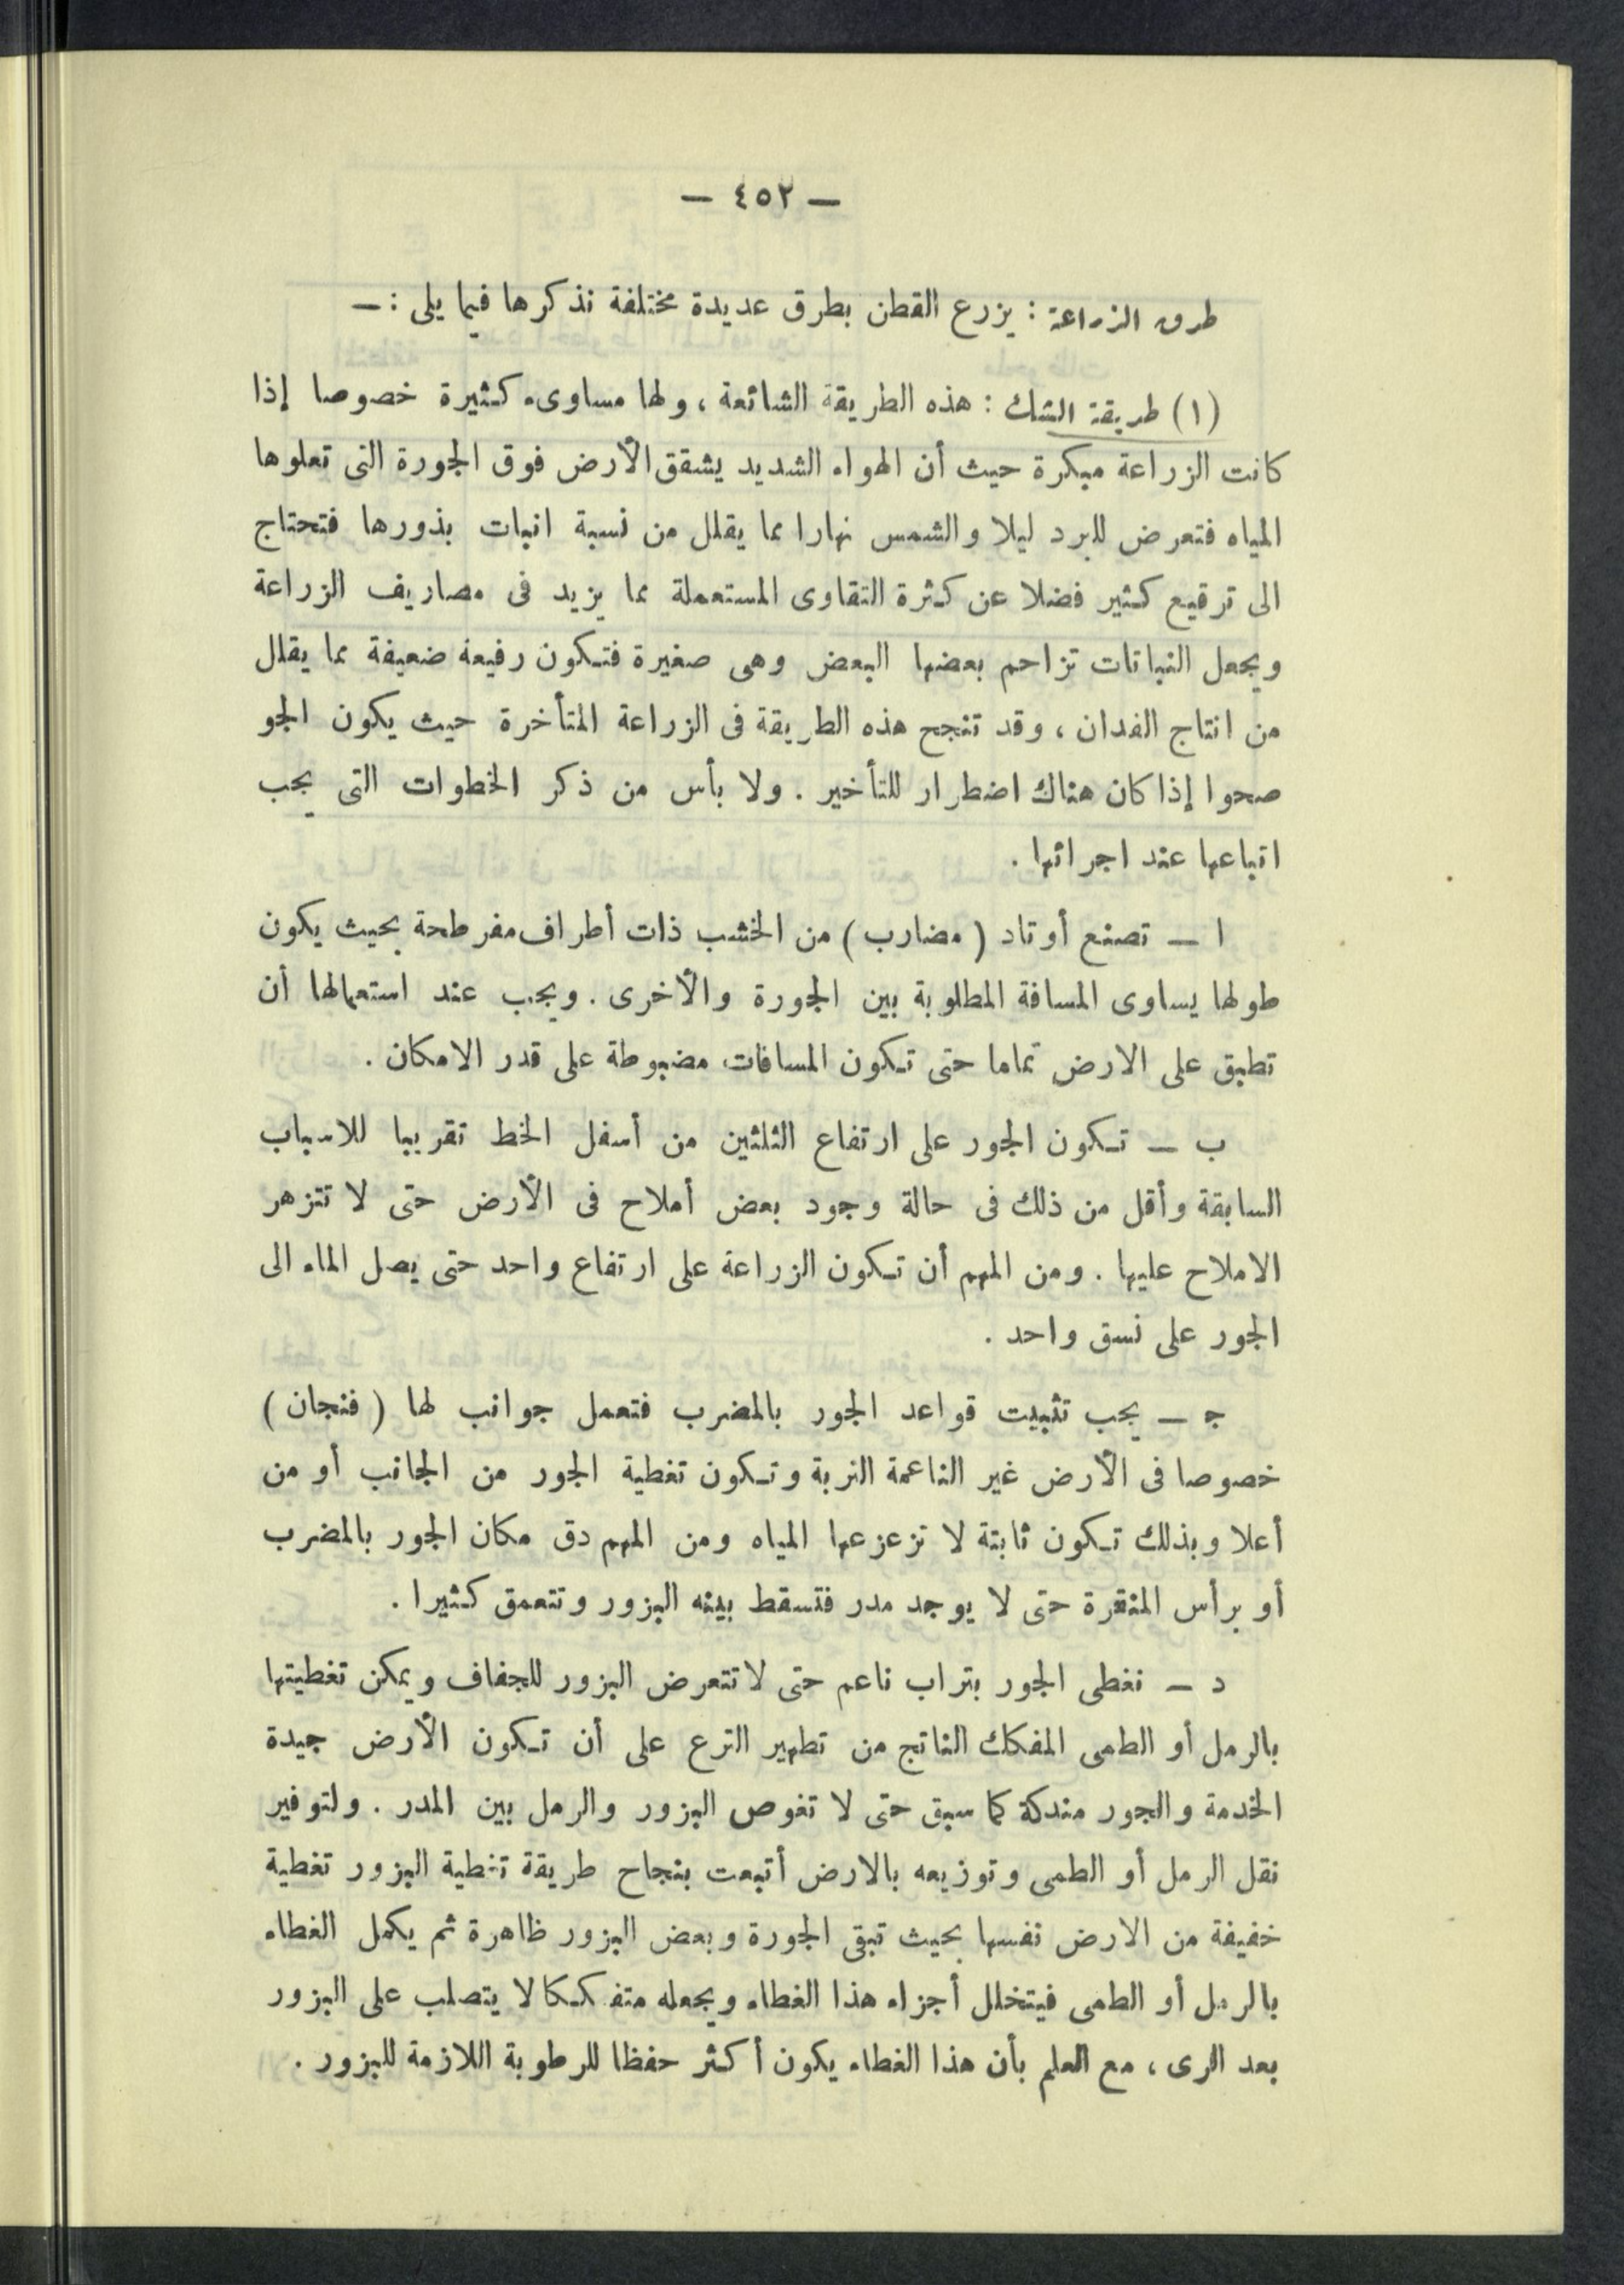 — ٤٥٢ —
طرق الزراعة : يزرع القطن بطرق عديدة مختلفة نذكرها فيما يلى : —
(١) طريقة الشك : هذه الطريقة الشائعة ، ولها مساوىء كثيرة خصوصا إذا
كانت الزراعة مبكرة حيث أن الهواء الشديد يشقق الأرض فوق الجورة التى تعلوها
المياه فتعرض للبرد ليلا والشمس نهارا مما يقلل من نسبة انبات بذورها فتحتاج
الى ترقيع كثير فضلا عن كثرة التقاوى المستعملة مما يزيد فى مصاريف الزراعة
ويجعل النباتات تزاحم بعضها البعض وهى صغيرة فتكون رفيعة ضعيفة مما يقلل
من انتاج الفدان ، وقد تنجح هذه الطريقة فى الزراعة المتأخرة حيث يكون الجو
صحوا إذا كان هناك اضطرار للتأخير . ولا بأس من ذكر الخطوات التى يجب
اتباعها عند اجرائها .
ا — تصنع أوتاد ( مضارب ) من الخشب ذات أطراف مفرطحة بحيث يكون
طولها يساوى المسافة المطلوبة بين الجورة والأخرى . ويجب عند استعمالها أن
تطبق على الارض تماما حتى تكون المسافات مضبوطة على قدر الامكان .
ب — تكون الجور على ارتفاع الثلثين من أسفل الخط تقريبا للاسباب
السابقة وأقل من ذلك فى حالة وجود بعض أملاح فى الأرض حتى لا تتزهر
الاملاح عليها . ومن المهم أن تكون الزراعة على ارتفاع واحد حتى يصل الماء الى
الجور على نسق واحد .
ج — يجب تثبيت قواعد الجور بالمضرب فتعمل جوانب لها ( فنجان )
خصوصا فى الأرض غير الناعمة التربة وتكون تغطية الجور من الجانب أو من
أعلا وبذلك تكون ثابتة لا تزعزعها المياه ومن المهم دق مكان الجور بالمضرب
أو برأس المنقرة حتى لا يوجد مدر فتسقط بينه البزور وتتعمق كثيرا .
د — نغطى الجور بتراب ناعم حتى لا تتعرض البزور للجفاف ويمكن تغطيتها
بالرمل أو الطمى المفكك الناتج من تطهير الترع على أن تكون الأرض جيدة
الخدمة والجور مندكة كما سبق حتى لا تغوص البزور والرمل بين المدر . ولتوفير
نقل الرمل أو الطمى وتوزيعه بالارض أتبعت بنجاح طريقة تغطية البزور تغطية
خفيفة من الارض نفسها بحيث تبقى الجورة وبعض البزور ظاهرة ثم يكمل الغطاء
بالرمل أو الطمى فيتخلل أجزاء هذا الغطاء ويجعله متفككا لا يتصلب على البزور
بعد الرى ، مع العلم بأن هذا الغطاء يكون أكثر حفظا للرطوبة اللازمة للبزور .